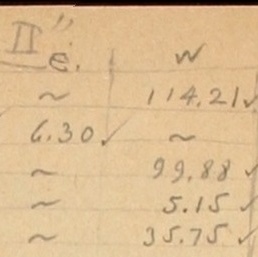 II" e. W
~ 114.21✓
6.30✓ ~
~ 99.88✓
~ 5.15✓
~ 35.75✓